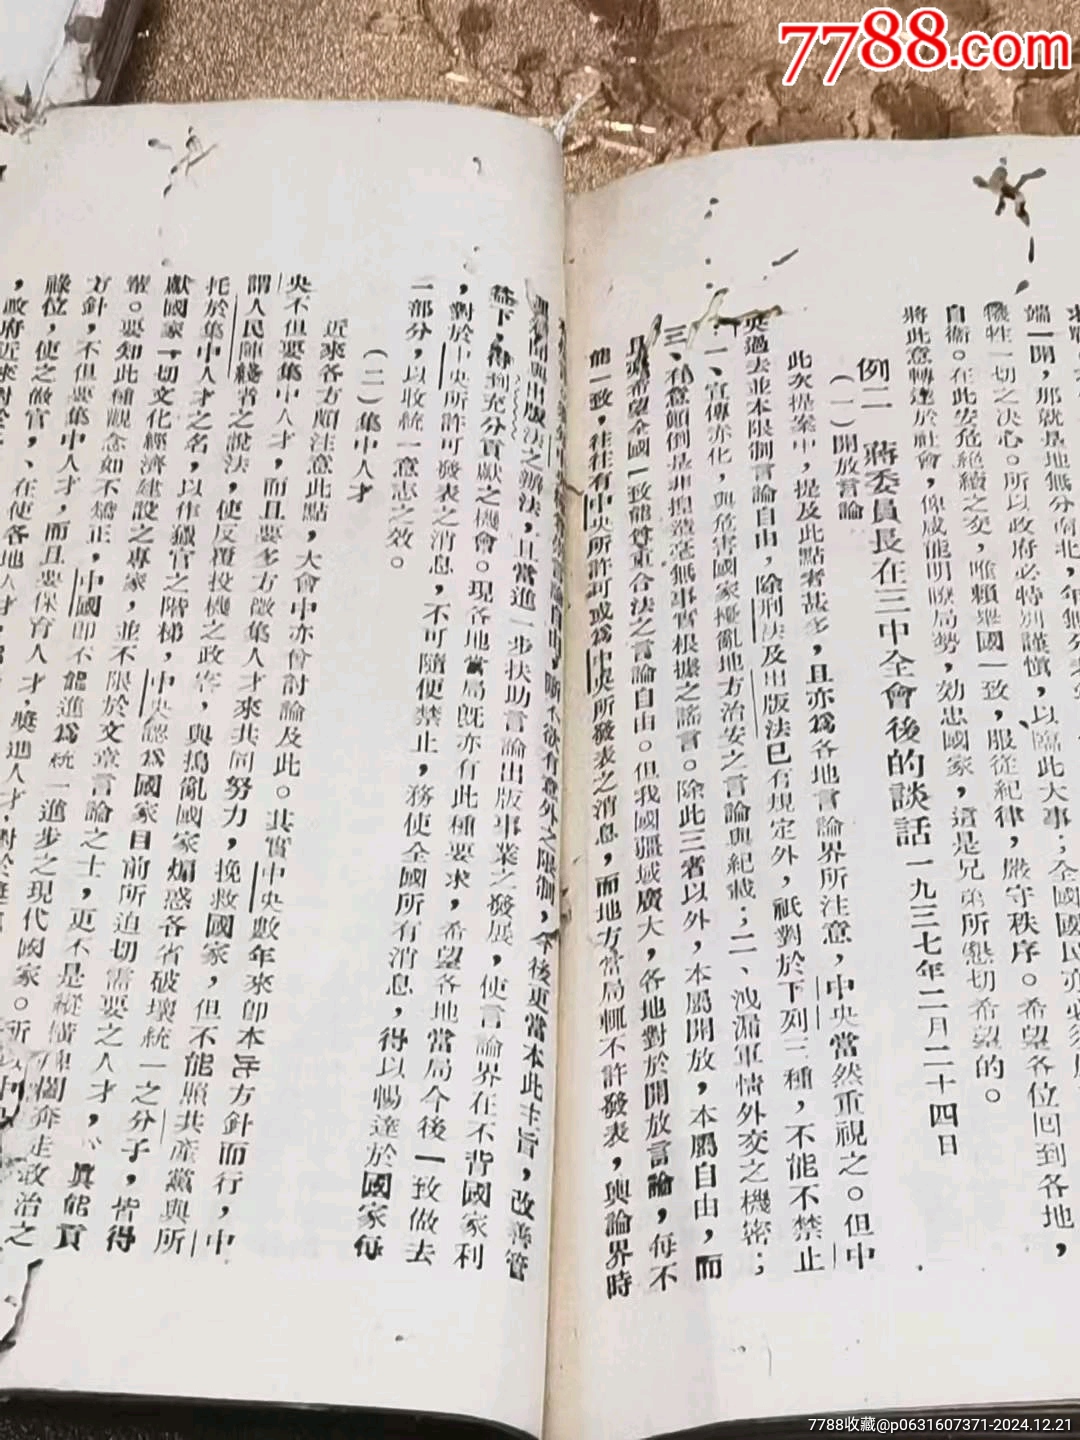 7788.com
端一開，那就是地無分南北，年無分老
犧牲一切之决心。所以政府必特別謹慎，以臨此大事；全國國民亦必須
自衞。在此安危絕續之交，唯賴舉國一致，服從紀律，嚴守秩序。希望各位回到各地，
將此意轉達於社會，俾咸能明瞭局勢，効忠國家，這是兄弟所懇切希望的。
例二　蔣委員長在三中全會後的談話 一九三七年二月二十四日
（一）開放言論
此次提案中，提及此點者甚多，且亦爲各地言論界所注意，中央當然重視之。但中
央過去並未限制言論自由，除刑法及出版法已有規定外，祇對於下列三種，不能不禁止
：一、宣傳赤化，與危害國家擾亂地方治安之言論與紀載；二、洩漏軍情外交之機密；
三、有意顛倒是非揑造毫無事實根據之謠言。除此三者以外，本屬開放，本屬自由，而
且亦希望全國一致能尊重合法之言論自由。但我國疆域廣大，各地對於開放言論，每不
能一致，往往有中央所許可或爲中央所發表之消息，而地方當局輒不許發表，輿論界時
言論自由，斷不欲有意外之限制，今後更當本此主旨，改善管
理新聞與出版法之辦法，且當進一步扶助言論出版事業之發展，使言論界在不背國家利
益下，得到充分貢獻之機會。現各地當局旣亦有此種要求，希望各地當局今後一致做去
，對於中央所許可發表之消息，不可隨便禁止，務使全國所有消息，得以暢達於國家每
一部分，以收統一意志之效。
（二）集中人才
近來各方頗注意此點，大會中亦曾討論及此。其實中央數年來卽本此方針而行，中
央不但要集中人才，而且要多方徵集人才來共同努力，挽救國家，但不能照共產黨與所
謂人民陣綫者之說法，使反覆投機之政客，與搗亂國家煽惑各省破壞統一之分子，皆得
托於集中人才之名，以作獵官之階梯，中央認爲國家目前所迫切需要之人才，眞能貢
獻國家一切文化經濟建設之專家，並不限於文章言論之士，更不是縱橫捭闔奔走政治之
輩。要知此種觀念如不矯正，中國卽不能進爲統一進步之現代國家。所以中
方針，不但要集中人才，而且要保育人才，奬進人才，對於
祿位，使之做官，在使各地人才
，政府近來對於
7788收藏@p0631607371-2024.12.21